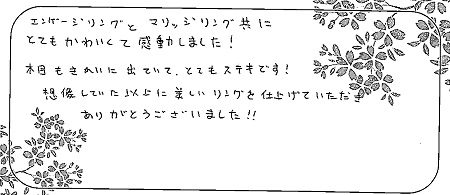 エンゲージリングと マリッジリング共に
とてもかわいくて感動しました!
木目もきれいに出ていて、とてもステキです!
想像していた以上に美しいリングを仕上げていただき
ありがとうございました!!